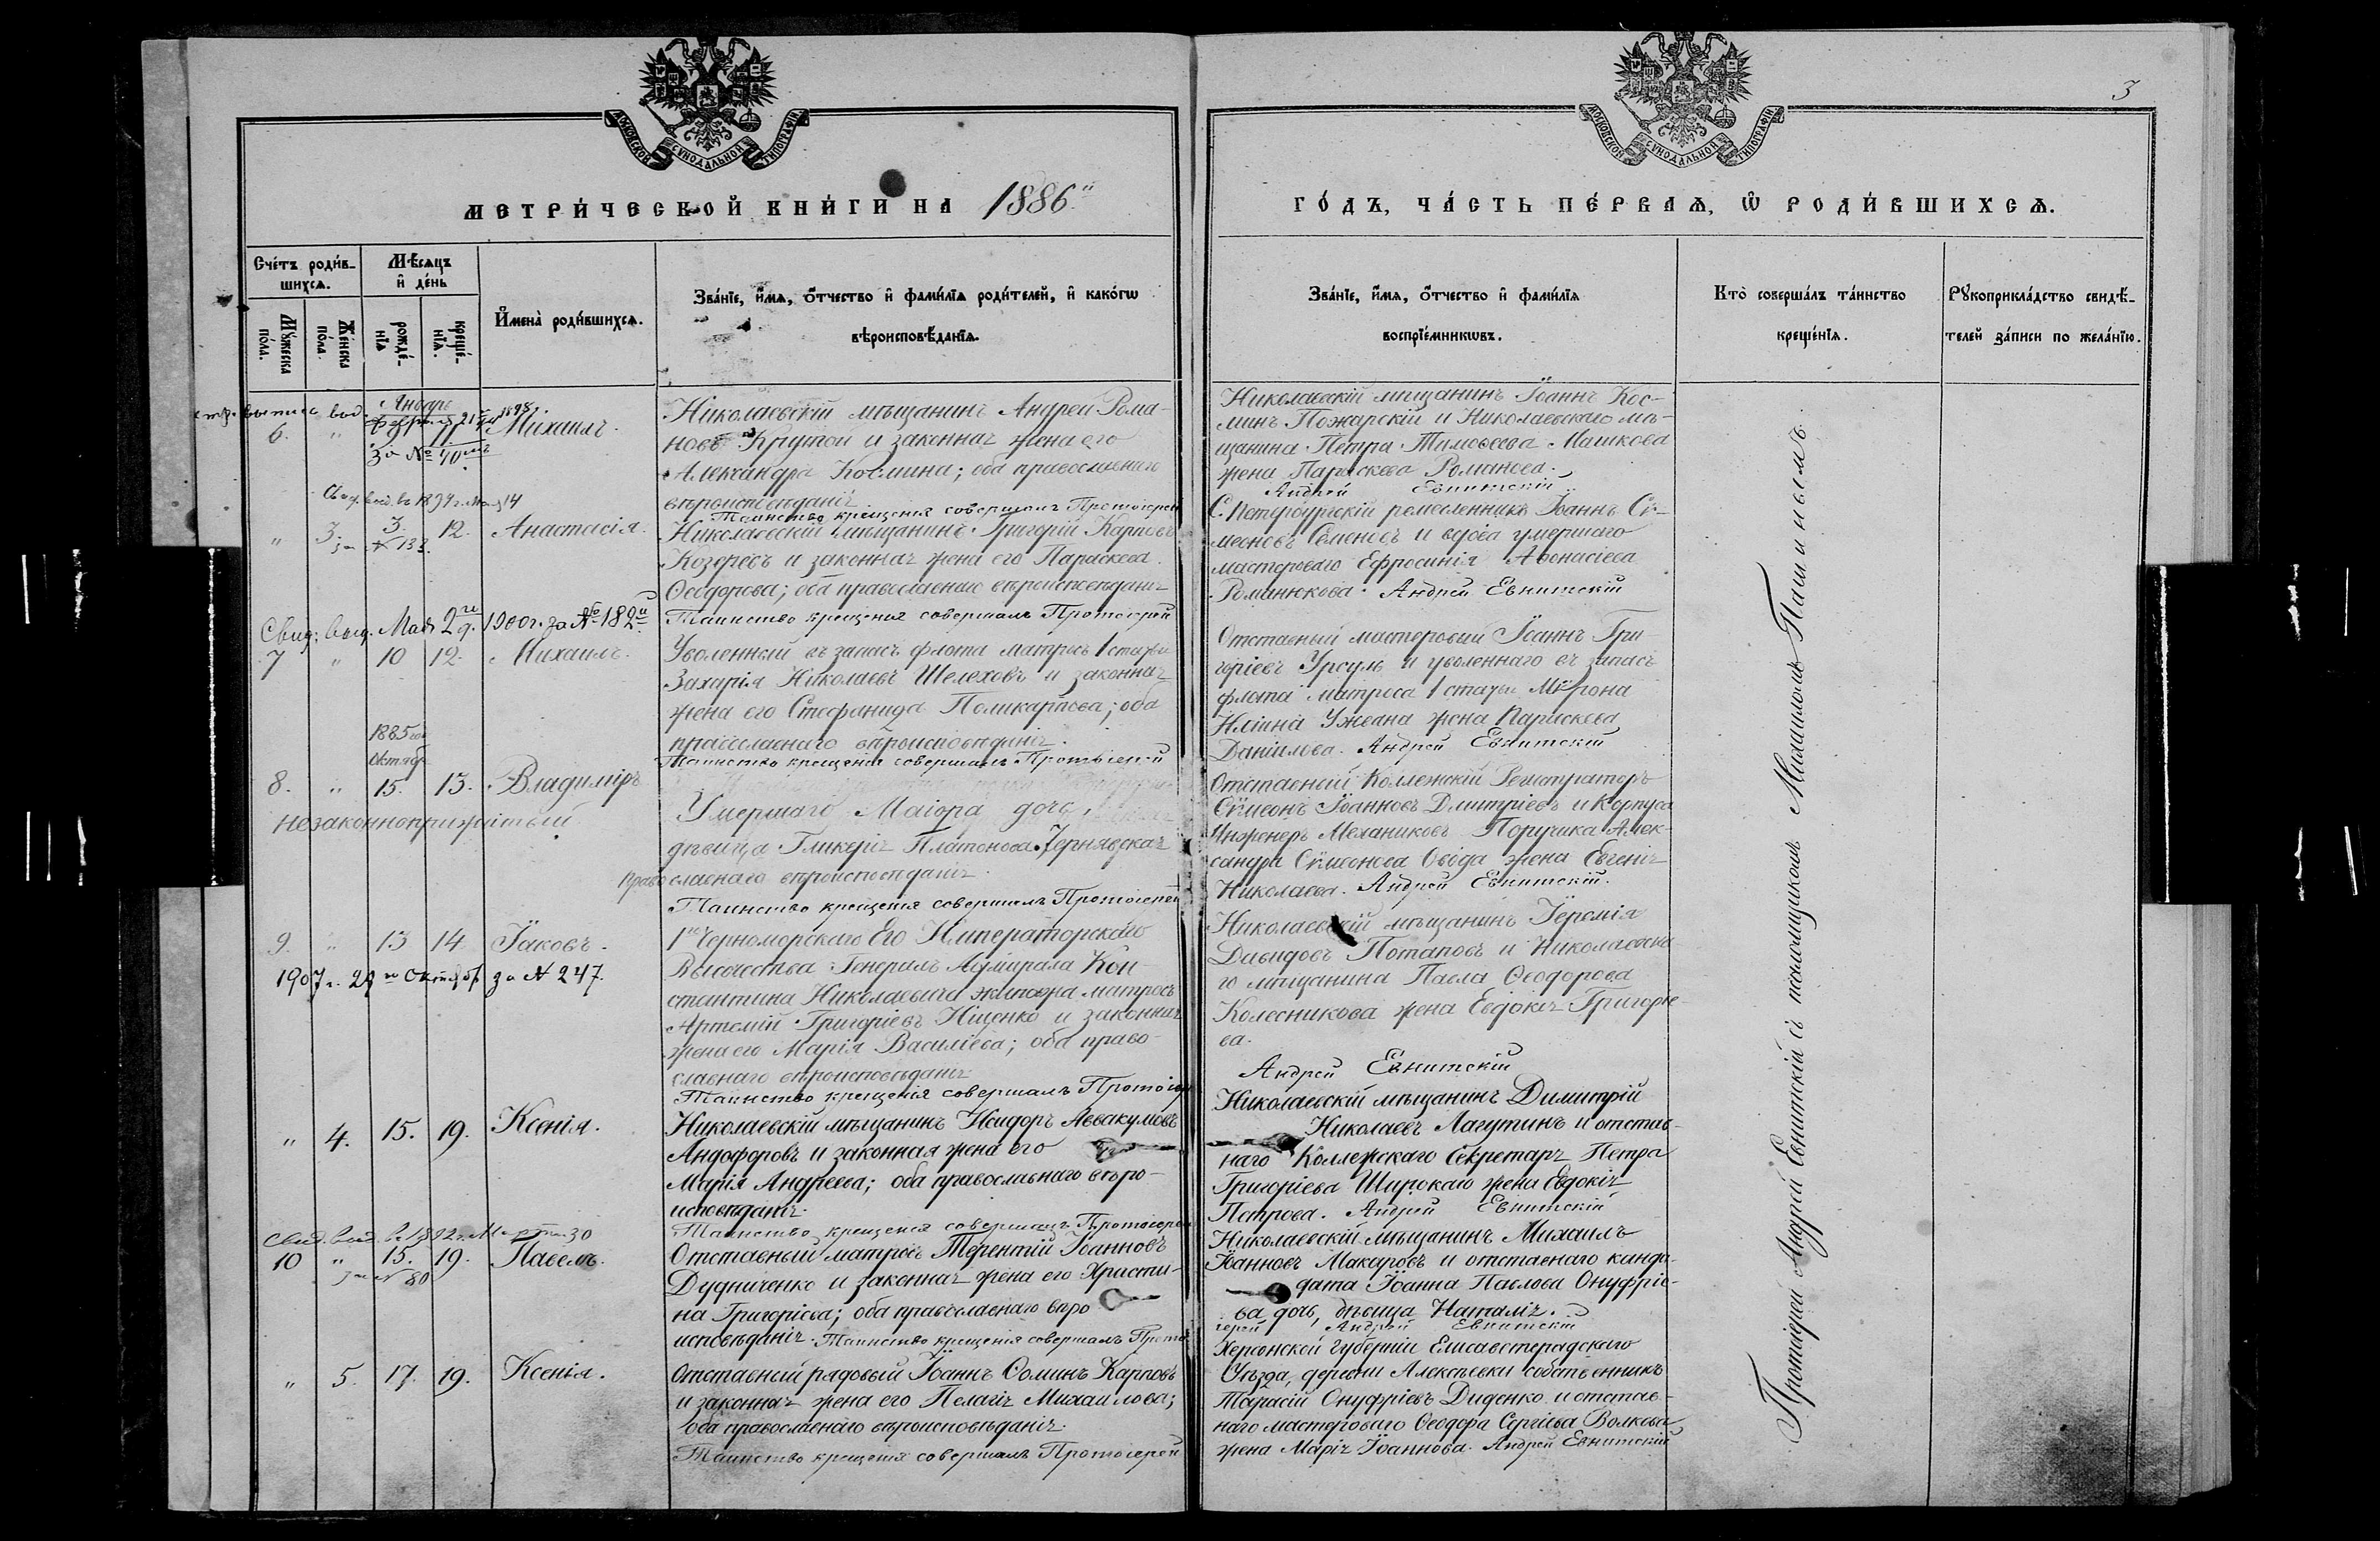 3
МОСКОВСКОЙ СУНОДАЛЬНОЙ ТИПОГРАФІИ
МОСКОВСКОЙ СУНОДАЛЬНОЙ ТИПОГРАФІИ
МЕТРИ́ЧЕСКОЙ КНИ́ГИ НА 1886
ГО́ДЪ, ЧА́СТЬ ПЕ́РВАѦ, Ѡ РОДИ́ВШИХСѦ.
Сче́тъ роди́в-
шихсѧ.
Мꙋ́жеска
по́ла.
Же́нска
по́ла.
Мѣ́сѧцъ
и҆ де́нь
рожде́-
нїѧ
креще́-
нїѧ.
И҆мена̀ роди́вшихсѧ.
Зва́нїе, и҆́мѧ, ѻ҆́тчество и҆ фамѝлїѧ роди́телей, и҆ како́гѡ
вѣроисповѣ́данїѧ.
Зва́нїе, и҆́мѧ, ѻ҆́тчество и҆ фами́лїѧ
воспрїе́мникѡвъ.
Кто̀ соверша́лъ та́инство
креще́нїѧ.
Рꙋкоприкла́дство свидѣ́-
телей за́писи по жела́нїю.
Январь
6. " 11 Михаилъ.
За № 40
Николаевскій мѣщанинъ Андрей Рома-
новъ Крутой и законная жена его
Александра Космина; оба православнаго
вѣроисповѣданія
Таинство крещенія совершалъ Протоіерей
Николаевскій мѣщанинъ Іоаннъ Кос-
минъ Пожарскій и Николаевскаго мѣ-
щанина Петра Тимофеева Машкова
жена Параскева Романова.
Андрей Евнитскій
14
" 3. 3. 12. Анастасія.
за № 133
Николаевскій мѣщанинъ Григорій Карповъ
Козыревъ и законная жена его Параскева
Ѳеодорова; оба православнаго вѣроисповѣданія
Таинство крещенія совершалъ Протоіерей
С. Петербургскій ремесленникъ Іоаннъ Си-
меоновъ Семеновъ и вдова умершаго
мастероваго Ефросинія Аѳонасіева
Романюкова. Андрей Евнитскій
Свид. выд. Мая 2 д. 1900 г. за № 182
7 " 10 12. Михаилъ.
Уволенный въ запасъ флота матросъ 1 статьи
Захарія Николаевъ Шелеховъ и законная
жена его Стефанида Поликарпова; оба
православнаго вѣроисповѣданія.
Таинство крещенія совершалъ Протоіерей
Отставный мастеровый Іоаннъ Гри-
горіевъ Урсулъ и уволеннаго въ запасъ
флота матроса 1 статьи Мирона
Иліина жена Параскева
Даніилова. Андрей Евнитскій
1885
Октяб.
8. " 15. 13. Владиміръ
незаконноприжитый
Умершаго Маіора дочь,
дѣвица Гликерія Платонова Чернявская
православнаго вѣроисповѣданія.
Таинство крещенія совершалъ Протоіерей
Отставный Коллежскій Регистраторъ
Сумеонъ Іоанновъ Димитріевъ и Корпуса
Инженеръ Механиковъ Поручика Алек-
сандра Сумеонова Овода жена Евгенія
Николаева. Андрей Евнитскій.
9. " 13 14 Іаковъ.
1907 г. Октябр за № 247.
1го Черноморскаго Его Императорскаго
Высочества Генералъ Адмирала Кон-
стантина Николаевича экипажа матросъ
Артемій Григоріевъ Ищенко и законная
жена его Марія Василіева; оба право-
славнаго вѣроисповѣданія
Таинство крещенія совершалъ Протоіерей
Николаевскій мѣщанинъ Іеремія
Давидовъ Потаповъ и Николаевска-
го мѣщанина Павла Ѳеодорова
Колесникова жена Евдокія Григорье-
ва.
Андрей Евнитскій
" 4. 15. 19. Ксенія.
Николаевскій мѣщанинъ Исидоръ Аввакумовъ
Андофоровъ и законная жена его
Марія Андреева; оба православнаго вѣро-
исповѣданія.
Таинство крещенія совершалъ Протоіерей
Николаевскій мѣщанинъ Димитрій
Николаевъ Лагутинъ и отстав-
наго Коллежскаго Секретаря Петра
Григоріева Широкаго жена Евдокія
Петрова. Андрей Евнитскій
Свид. выд. въ 1892 г. Марта 30
10 " 15. 19. Павелъ.
за № 80
Отставный матросъ Терентій Іоанновъ
Дудниченко и законная жена его Христи-
на Григоріева; оба православнаго вѣро
исповѣданія. Таинство крещенія совершалъ Прото
Николаевскій мѣщанинъ Михаилъ
Іоанновъ Макуровъ и отставнаго канди-
дата Іоанна Павлова Онуфріе-
ва дочь, дѣвица Наталія.
іерей Андрей Евнитскій
" 5. 17. 19. Ксенія.
Отставный рядовый Іоаннъ Ѳоминъ Карповъ
и законная жена его Пелагія Михаилова;
оба православнаго вѣроисповѣданія.
Таинство крещенія совершалъ Протоіерей
Херсонской губерніи Елисаветградскаго
Уѣзда, деревни Алексѣевки собственникъ
Тарасій Онуфріевъ Диденко и отстав-
наго мастероваго Ѳеодора Сергіева Волкова
жена Марія Іоаннова. Андрей Евнитскій
Протоіерей Андрей Евнитскій съ псаломщикомъ Михаиломъ